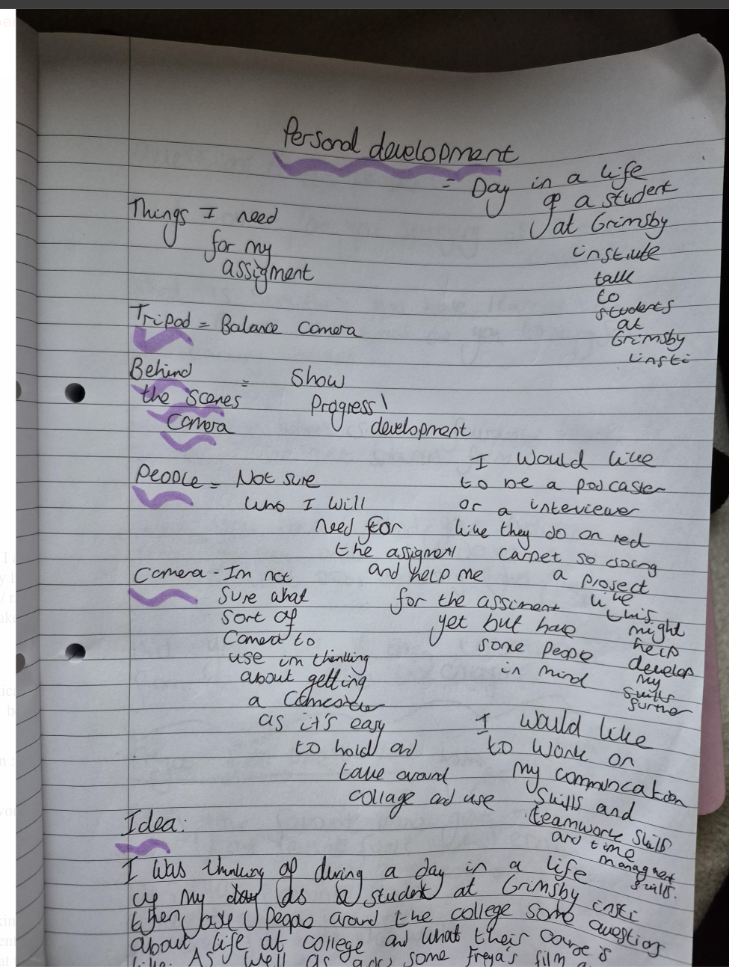 Personal development
= Day in a life
of a student
at Grimsby
institute
talk
to
students
at
Grimsby
insti
Things I need
for my
assigment
Tripod = Balance Camera
Behind
the Scenes
Camera
= Show
Progress \
development
People = Not sure
who I will
need for
the assigment
and help me
for the assiment
yet but have
some people
in mind
I would like
to be a podcaster
or a interviewer
like they do on red
carpet so doing
a project
like
this
might
help
develop
my
skills
further
Camera - Im not
sure what
sort of
Camera to
use im thinking
about getting
a Camcorder
as it's easy
to hold and
take around
collage and use
I would like
to work on
my communcation
Skills and
teamwork skills
and time
managment
skills.
Idea:
I was thinking of during a day in a life
of my day as a student at Grimsby insti
then ask people around the college some question
about life at college and what their course is
like. As well as ask some Freya's film